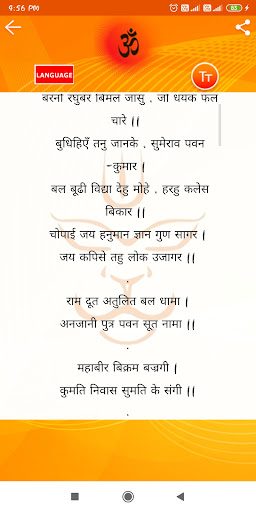 9:56
ॐ
LANGUAGE
TT
बरनौ रघुबर बिमल जासु , जो धयक फल
चारे ||
बुधिहिएँ तनु जानके , सुमेराव पवन
-कुमार |
बल बूढी विद्या देहु मोहे , हरहु कलेस
बिकार ||
चोपाई जय हनुमान ज्ञान गुण सागर |
जय कपिसे तहु लोक उजागर ||
.
राम दूत अतुलित बल धामा |
अनजानी पुत्र पवन सूत नामा ||
.
महाबीर बिक्रम बज्रगी |
कुमति निवास सुमति के संगी ||
.